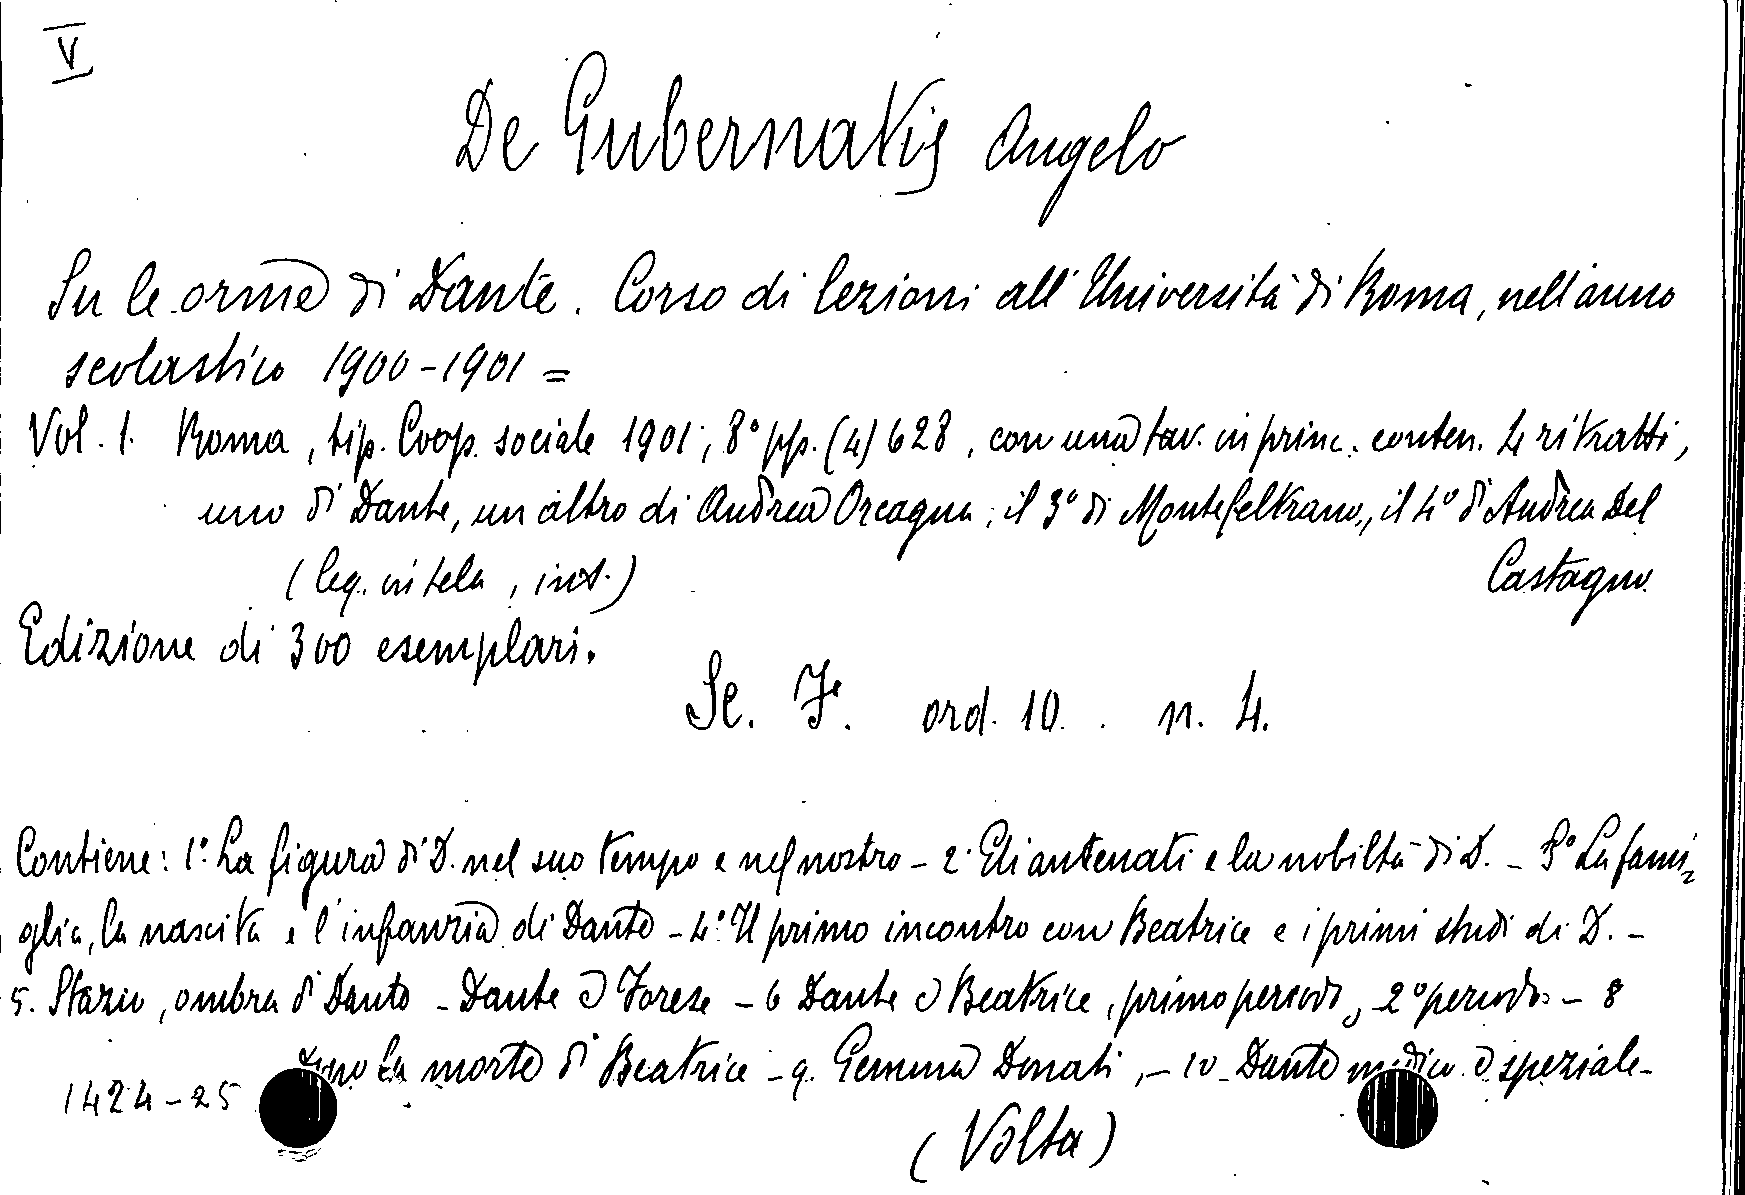 V
De Gubernatis Angelo
Su le orme di Dante. Corso di lezioni all'Università di Roma, nell'anno
scolastico 1900-1901 =
Vol. 1. Roma, tip. Coop. sociale 1901, 8° pp. (4) 628, con una tav. in princ. conten. 4 ritratti,
uno di Dante, un altro di Andrea Orcagna, il 3° di Montefeltrano, il 4° d'Andrea Del
Castagno
(leg. in tela, int.)
Edizione di 300 esemplari.
Se. F. ord. 10. n. 4.
Contiene: 1°. La figura di D. nel suo tempo e nel nostro - 2. Gli antenati e la nobiltà di D. - 3° La fami=
glia, la nascita e l'infanzia di Dante - 4°. Il primo incontro con Beatrice e i primi studi di D. -
5. Stazio, ombra di Dante - Dante e Forese - 6 Dante e Beatrice, primo periodo, 2° periodo - 8
La morte di Beatrice - 9. Gemma Donati, - 10 - Dante medico e speziale -
1424-25
(Volta)